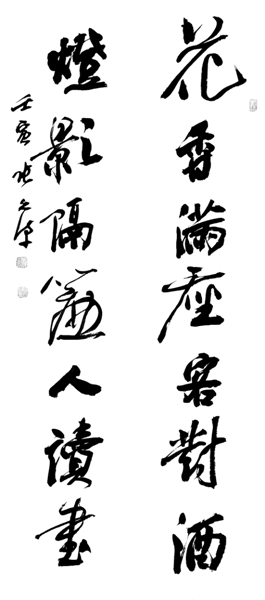 花香满座客對酒
燈影隔簾人讀書
壬寅